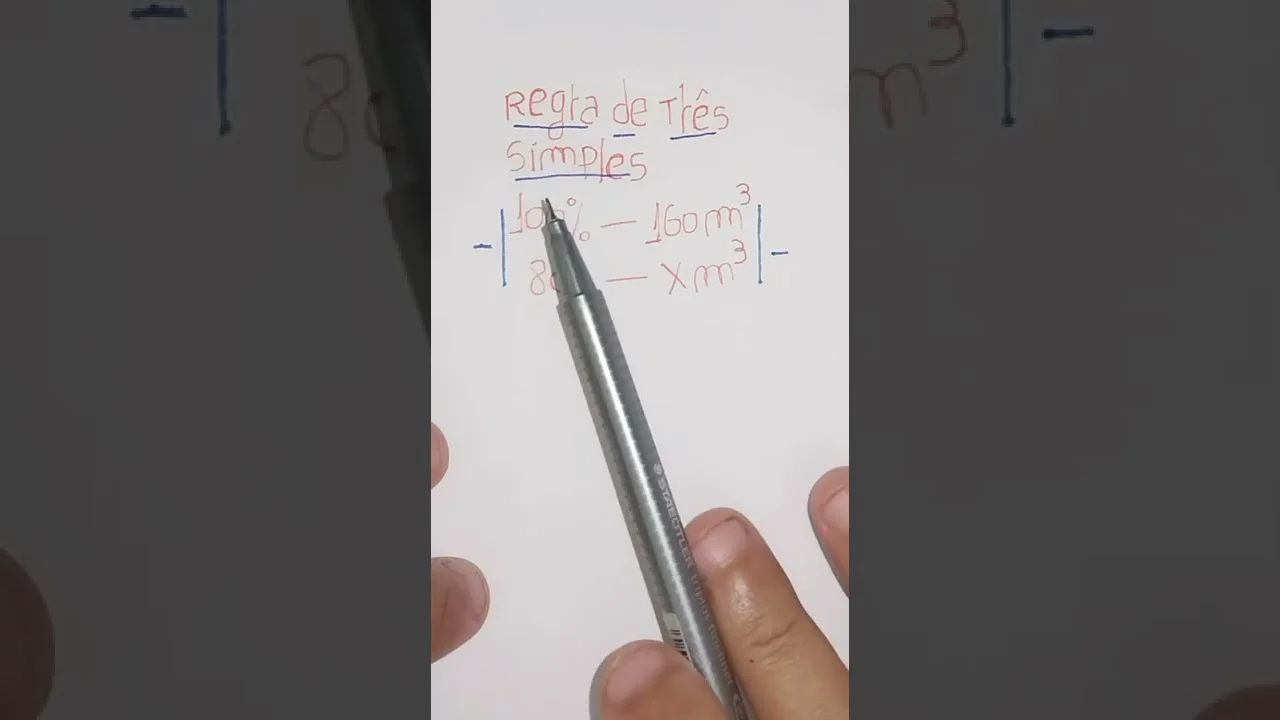 Regra de Três
Simples
100% — 160m³
— Xm³
STAEDTLER